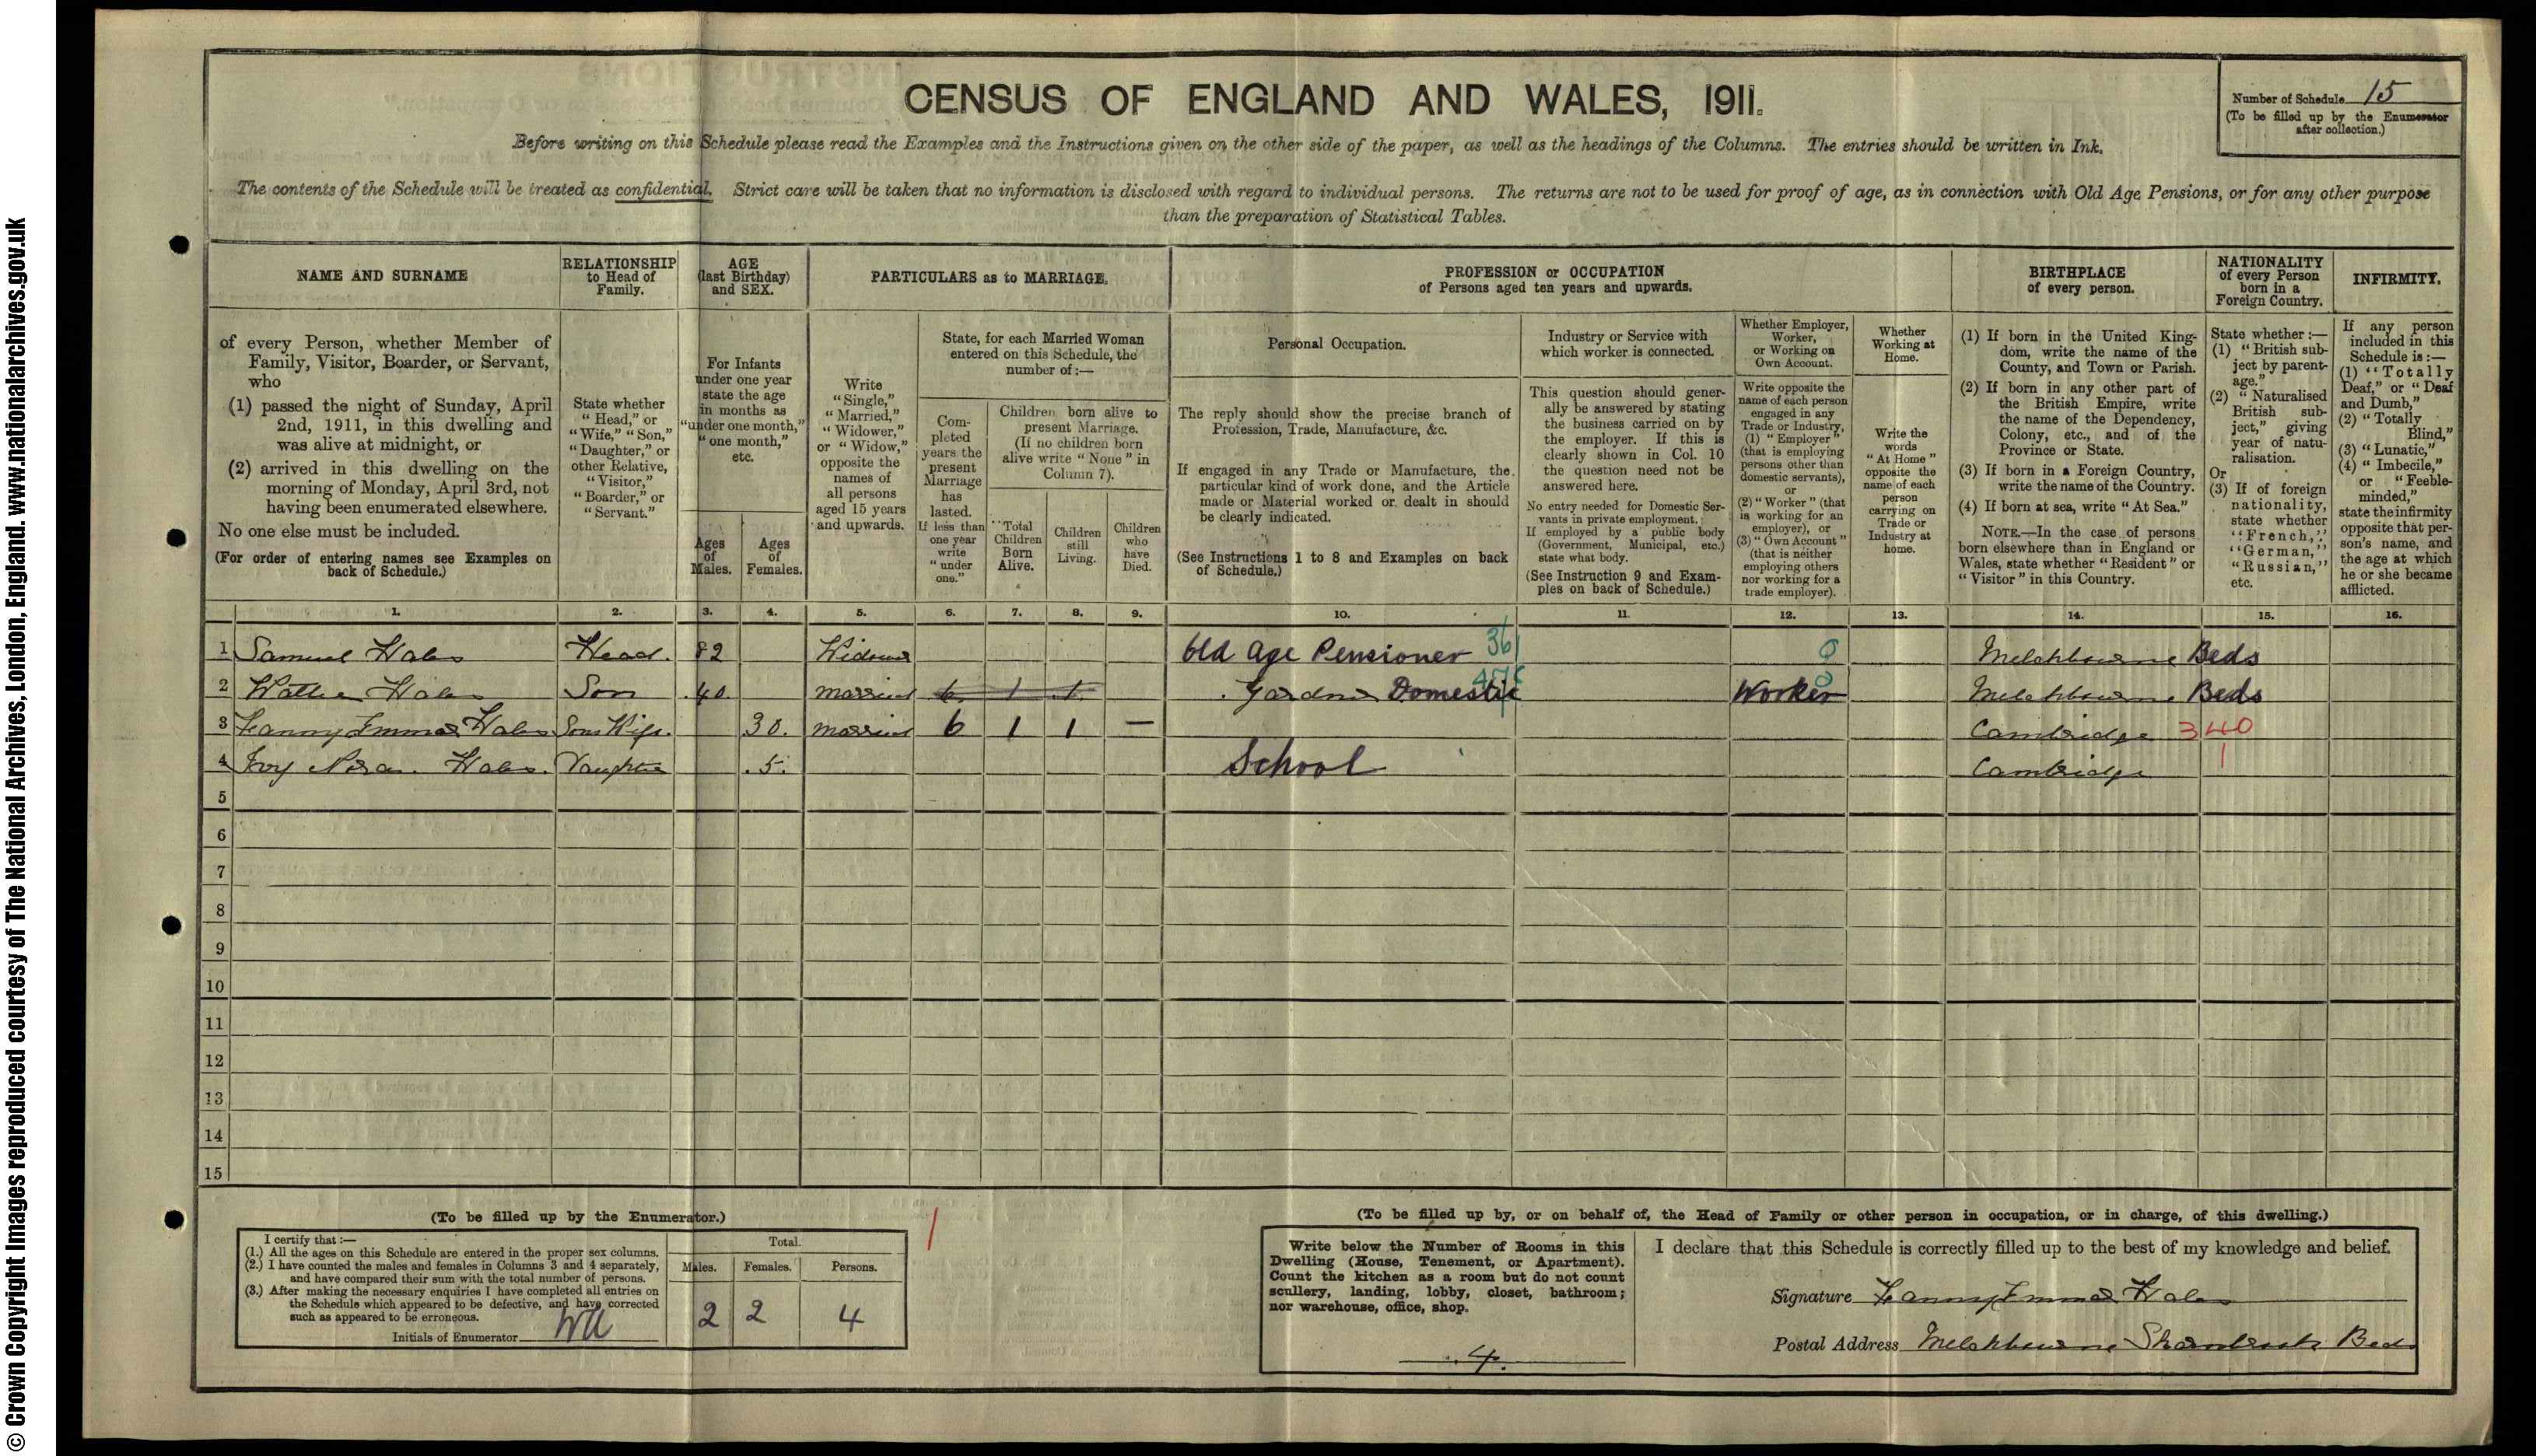 CENSUS OF ENGLAND AND WALES, 1911.
Number of Schedule 15
(To be filled up by the Enumerator after collection.)
Before writing on this Schedule please read the Examples and the Instructions given on the other side of the paper, as well as the headings of the Columns. The entries should be written in Ink.
The contents of the Schedule will be treated as confidential. Strict care will be taken that no information is disclosed with regard to individual persons. The returns are not to be used for proof of age, as in connection with Old Age Pensions, or for any other purpose
than the preparation of Statistical Tables.
NAME AND SURNAME
of every Person, whether Member of
Family, Visitor, Boarder, or Servant,
who
(1) passed the night of Sunday, April
2nd, 1911, in this dwelling and
was alive at midnight, or
(2) arrived in this dwelling on the
morning of Monday, April 3rd, not
having been enumerated elsewhere.
No one else must be included.
(For order of entering names see Examples on
back of Schedule.)
RELATIONSHIP
to Head of
Family.
State whether
“Head,” or
“Wife,” “Son,”
“Daughter,” or
other Relative,
“Visitor,”
“Boarder,” or
“Servant.”
AGE
(last Birthday)
and SEX.
For Infants
under one year
state the age
in months as
“under one month,”
“one month,”
etc.
Ages
of
Males.
Ages
of
Females.
PARTICULARS as to MARRIAGE.
Write
“Single,”
“Married,”
“Widower,”
or “Widow,”
opposite the
names of
all persons
aged 15 years
and upwards.
State, for each Married Woman
entered on this Schedule, the
number of:—
Com-
pleted
years the
present
Marriage
has
lasted.
If less than
one year
write
“under
one.”
Children born alive to
present Marriage.
(If no children born
alive write “None” in
Column 7).
Total
Children
Born
Alive.
Children
still
Living.
Children
who
have
Died.
PROFESSION or OCCUPATION
of Persons aged ten years and upwards.
Personal Occupation.
The reply should show the precise branch of
Profession, Trade, Manufacture, &c.
If engaged in any Trade or Manufacture, the
particular kind of work done, and the Article
made or Material worked or dealt in should
be clearly indicated.
(See Instructions 1 to 8 and Examples on back
of Schedule.)
Industry or Service with
which worker is connected.
This question should gener-
ally be answered by stating
the business carried on by
the employer. If this is
clearly shown in Col. 10
the question need not be
answered here.
No entry needed for Domestic Ser-
vants in private employment.
If employed by a public body
(Government, Municipal, etc.)
state what body.
(See Instruction 9 and Exam-
ples on back of Schedule.)
Whether Employer,
Worker,
or Working on
Own Account.
Write opposite the
name of each person
engaged in any
Trade or Industry,
(1) “Employer”
(that is employing
persons other than
domestic servants),
or
(2) “Worker” (that
is working for an
employer), or
(3) “Own Account”
(that is neither
employing others
nor working for a
trade employer).
Whether
Working at
Home.
Write the
words
“At Home”
opposite the
name of each
person
carrying on
Trade or
Industry at
home.
BIRTHPLACE
of every person.
(1) If born in the United King-
dom, write the name of the
County, and Town or Parish.
(2) If born in any other part of
the British Empire, write
the name of the Dependency,
Colony, etc., and of the
Province or State.
(3) If born in a Foreign Country,
write the name of the Country.
(4) If born at sea, write “At Sea.”
NOTE.—In the case of persons
born elsewhere than in England or
Wales, state whether “Resident” or
“Visitor” in this Country.
NATIONALITY
of every Person
born in a
Foreign Country.
State whether:—
(1) “British sub-
ject by parent-
age.”
(2) “Naturalised
British sub-
ject,” giving
year of natu-
ralisation.
Or
(3) If of foreign
nationality,
state whether
“French,”
“German,”
“Russian,”
etc.
INFIRMITY.
If any person
included in this
Schedule is:—
(1) “Totally
Deaf,” or “Deaf
and Dumb,”
(2) “Totally
Blind,”
(3) “Lunatic,”
(4) “Imbecile,”
or “Feeble-
minded,”
state the infirmity
opposite that per-
son's name, and
the age at which
he or she became
afflicted.
1. 2. 3. 4. 5. 6. 7. 8. 9. 10. 11. 12. 13. 14. 15. 16.
1 Samuel Hales Head. 82 Widower Old Age Pensioner 361 0 Melchbourne Beds
2 Hales Son 40. married 6 1 1 Gardner Domestic Worker 0 Melchbourne Beds
3 Fanny Emma Hales Sons Wife. 30. married 6 1 1 — Cambridge 340
4 Ivy Nora Hales. Daughter 5. School Cambridge 1
5
6
7
8
9
10
11
12
13
14
15
(To be filled up by the Enumerator.)
I certify that:—
(1.) All the ages on this Schedule are entered in the proper sex columns.
(2.) I have counted the males and females in Columns 3 and 4 separately,
and have compared their sum with the total number of persons.
(3.) After making the necessary enquiries I have completed all entries on
the Schedule which appeared to be defective, and have corrected
such as appeared to be erroneous.
Initials of Enumerator
Total.
Males. Females. Persons.
2 2 4
(To be filled up by, or on behalf of, the Head of Family or other person in occupation, or in charge, of this dwelling.)
Write below the Number of Rooms in this
Dwelling (House, Tenement, or Apartment).
Count the kitchen as a room but do not count
scullery, landing, lobby, closet, bathroom;
nor warehouse, office, shop.
4.
I declare that this Schedule is correctly filled up to the best of my knowledge and belief.
Signature Fanny Emma Hales
Postal Address Melchbourne Sharnbrook Beds
© Crown Copyright Images reproduced courtesy of The National Archives, London, England. www.nationalarchives.gov.uk